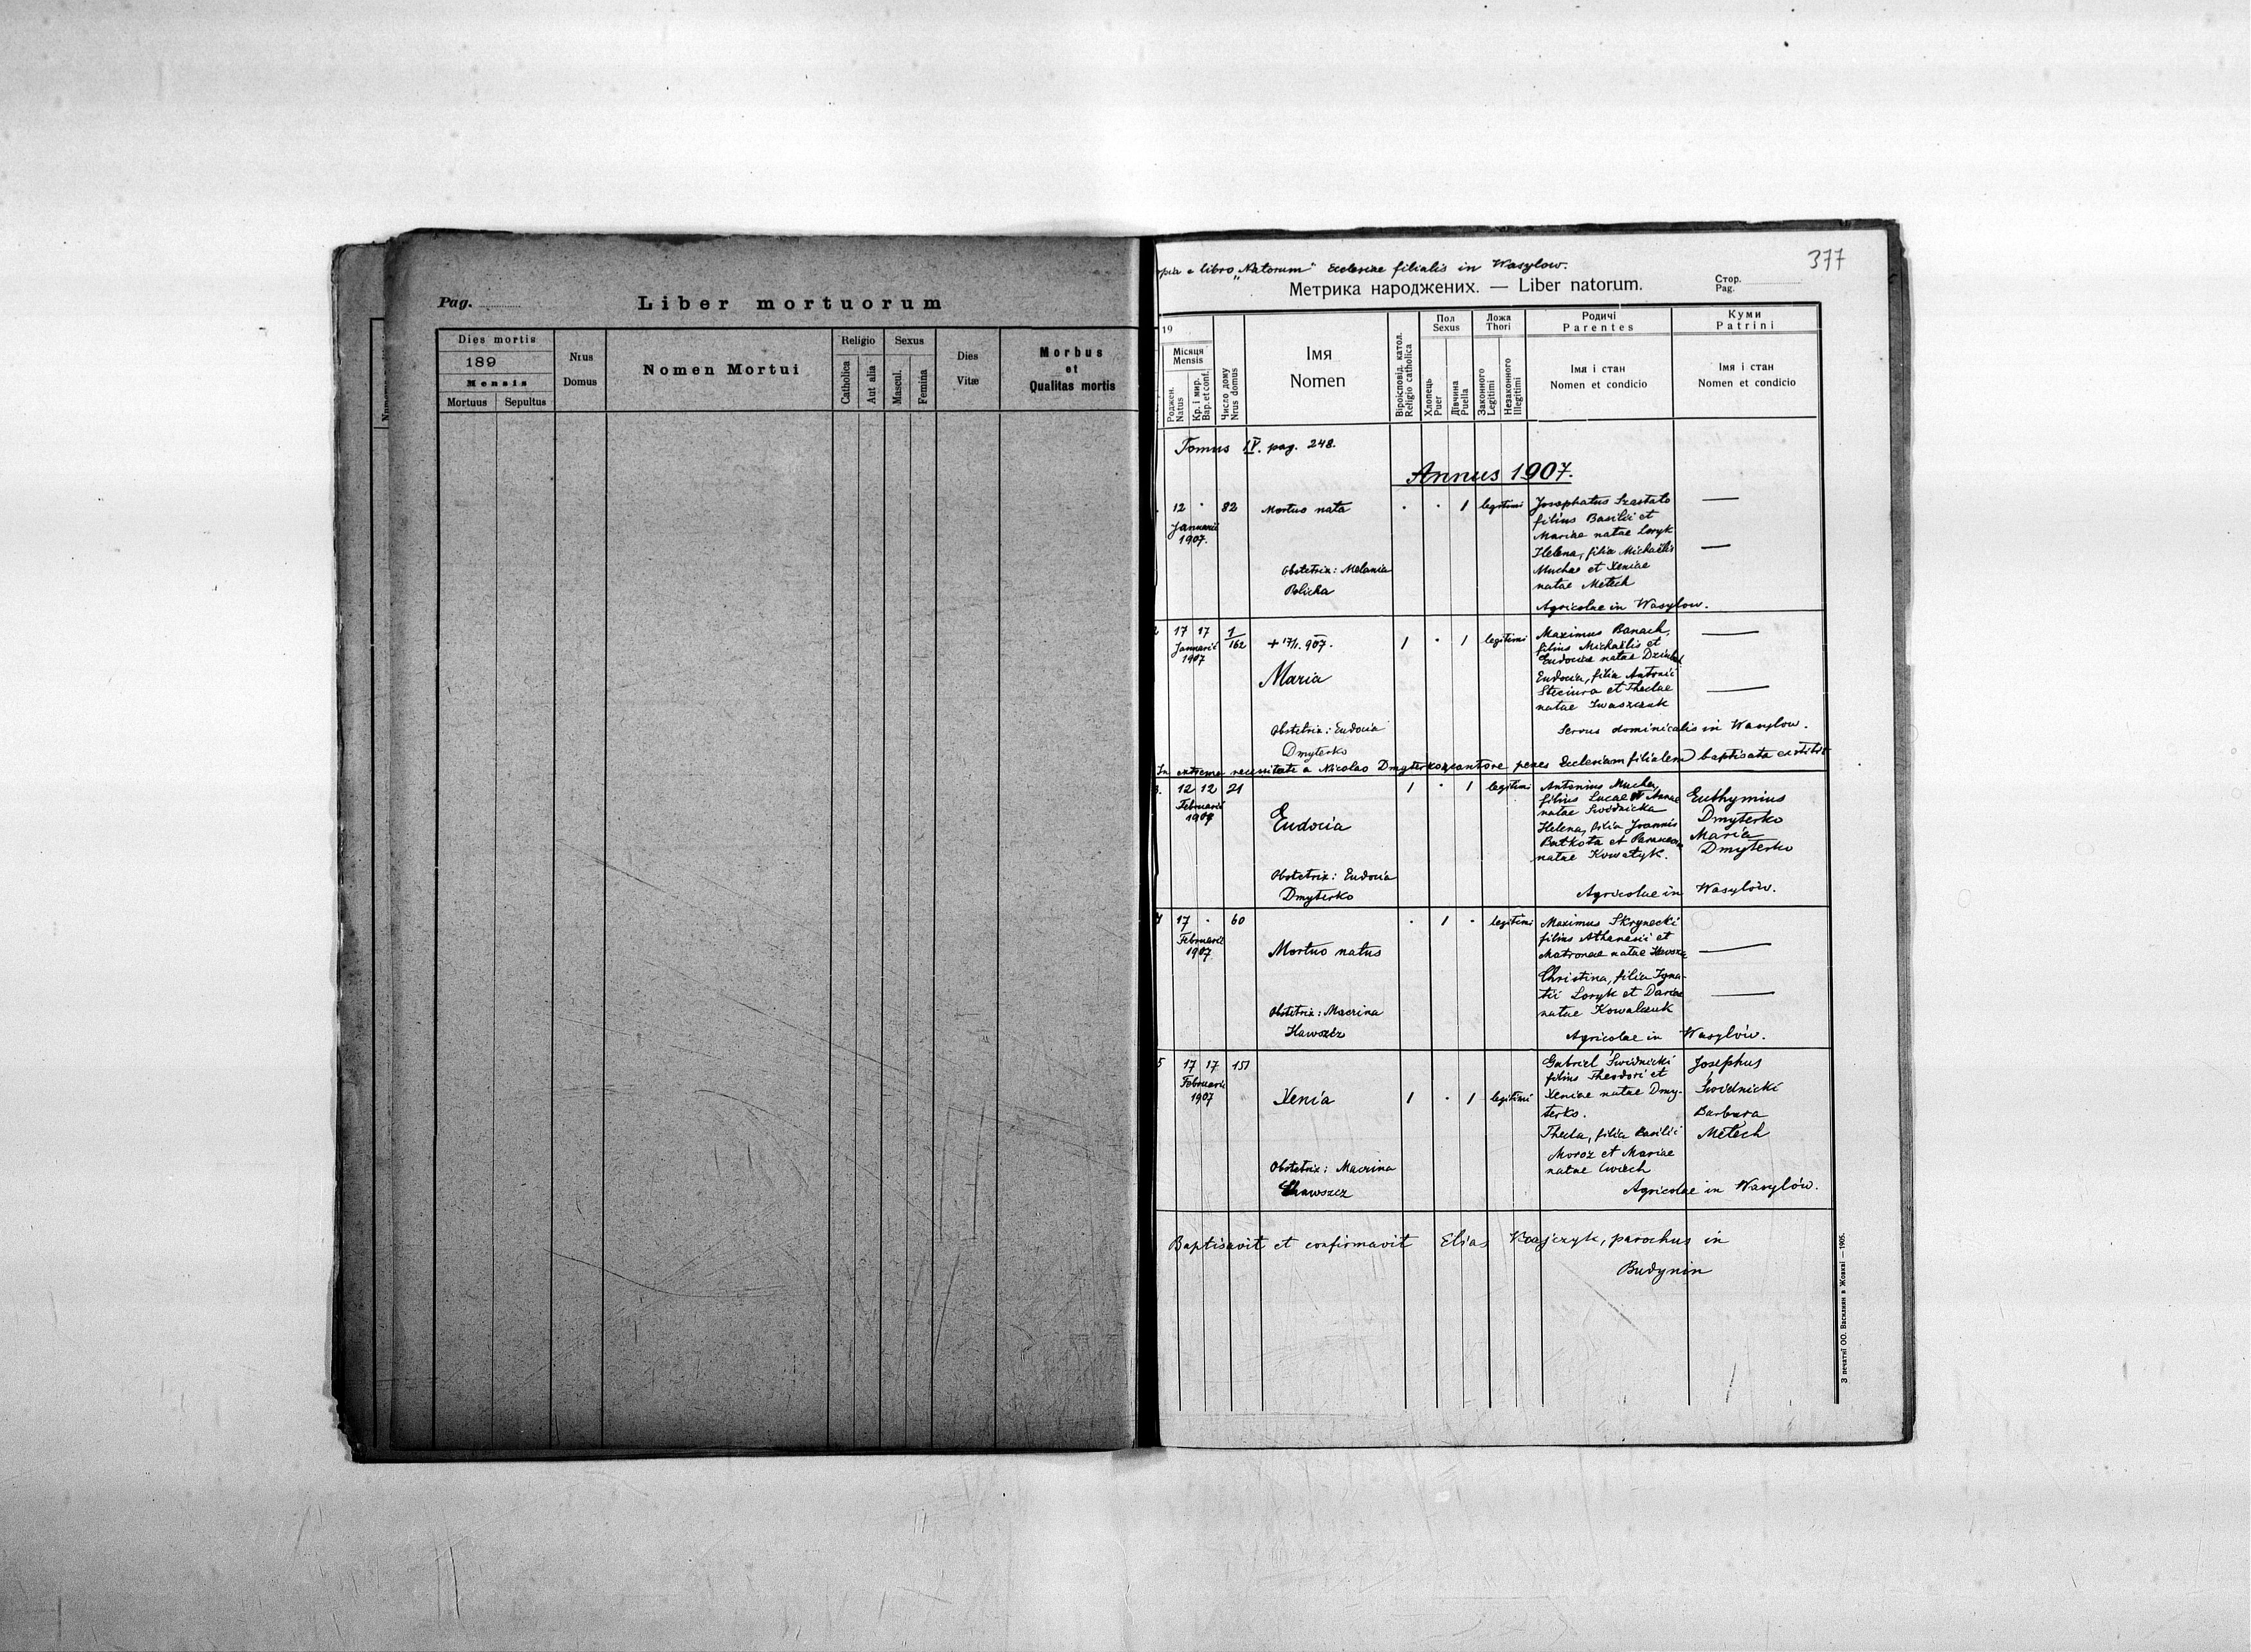 Pag.
Liber mortuorum
Dies mortis
189
Mensis
Mortuus
Sepultus
Nrus
Domus
Nomen Mortui
Religio
Catholica
Aut alia
Sexus
Mascul.
Femina
Dies
Vitæ
Morbus
et
Qualitas mortis
377
e libro „Natorum" Ecclesiae filialis in Wasylow.
Метрика народжених. — Liber natorum.
Стор.
Pag.
19
Місяця
Mensis
Роджен.
Natus
Кр. і мир.
Bap. et conf.
Число дому
Nrus domus
Імя
Nomen
Віроісповід. катол.
Religio catholica
Пол
Sexus
Хлопець
Puer
Дівчина
Puella
Ложа
Thori
Законного
Legitimi
Незаконного
Illegitimi
Родичі
Parentes
Імя і стан
Nomen et condicio
Куми
Patrini
Імя і стан
Nomen et condicio
Tomus IV. pag. 248.
Annus 1907.
12 82 Mortuo nata 1 legitimi
Januarii
1907.
Josaphatus Szastało
filius Basilii et
Mariae natae Loryk
Helena, filia Michaëlis
Muchae et Xeniae
natae Metech
Obstetrix: Melania
Policha
Agricolae in Wasylow.
2 17 17 1/162 + 17/1. 907. 1 1 legitimi
Januarii
1907
Maria
Maximus Banach,
filius Michaëlis et
Eudociae natae
Eudocia, filia Antonii
Steciura et Theclae
natae Iwaszczuk
Obstetrix: Eudocia
Dmyterko
Servus dominicalis in Wasylow.
In extrema necessitate a Nicolao Dmyterko, cantore penes Ecclesiam filialem baptisata
3. 12 12 21 1 1 legitimi
Februarii
1907
Eudocia
Antonius Mucha,
filius Lucae et Annae
natae Swidnicka
Helena, filia Joannis
Butkota et
natae Kowatyk.
Euthymius
Dmyterko
Maria
Dmyterko
Obstetrix: Eudocia
Dmyterko
Agricolae in Wasylów.
4 17 60 1 legitimi
Februarii
1907
Mortuo natus
Maximus Skrynecki
filius Athanasii et
Matronae natae
Christina, filia Igna-
tii Loryk et Dariae
natae Kowalczuk
Obstetrix: Macrina
Hawszcz
Agricolae in Wasylów.
5 17 17 151 1 1 legitimi
Februarii
1907
Xenia
Gabriel Swidnicki
filius Theodori et
Xeniae natae Dmy-
terko.
Thecla, filia Basilii
Moroz et Mariae
natae
Josephus
Swidnicki
Barbara
Metech
Obstetrix: Macrina
Hawszcz
Agricolae in Wasylów.
Baptisavit et confirmavit Elias Krajczyk, parochus in
Budynin
З печатні ОО. Василиян в Жовкві — 1905.